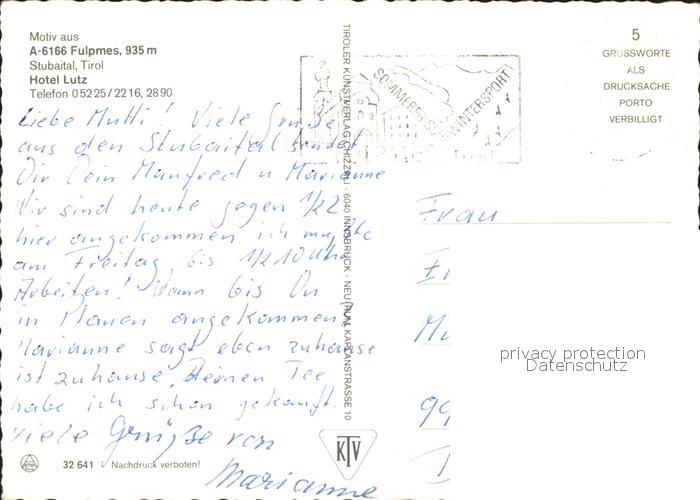 Motiv aus
A-6166 Fulpmes, 935 m
Stubaital, Tirol
Hotel Lutz
Telefon 0 52 25 / 22 16, 28 90
Liebe Mutti! Viele Grüße
aus dem Stubaital sendet
Dir Dein Manfred u Marianne
Wir sind heute gegen 1/2 2
hier angekommen ich mußte
am Freitag bis 1/2 10 Uhr
Arbeiten! Wann bis Du
in angekommen?
Marianne sagt eben zuhause
ist zuhause, deinen Tee
habe ich schon gekauft.
viele Grüße von
Marianne
32 641 Nachdruck verboten!
TIROLER KUNSTVERLAG CHIZZALI · 6040 INNSBRUCK - NEU-RUM, KAPLANSTRASSE 10
KTV
SOMMERFRISCHE WINTERSPORT
Tirol
5
GRUSSWORTE
ALS
DRUCKSACHE
PORTO
VERBILLIGT
Frau
99
privacy protection
Datenschutz